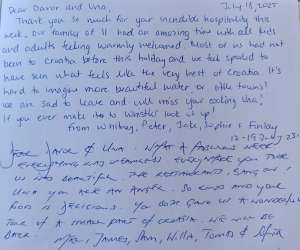 July 13, 2025
Dear Davor and Una,
Thank you so much for your incredible hospitality this
week. Our family of 11 had an amazing time with all kids
and adults feeling warmly welcomed. Most of us had not
been to Croatia before this holiday and we feel spoiled to
have seen what feels like the very best of Croatia. It's
hard to imagine more beautiful water or cities towns!
We are sad to leave and will miss your cooking Una!
If you ever make it to look us up!
From Whitney, Peter, Jake, Sophie & Finlay
12-19 July
& Una. What a fabulous week
everything was. Everywhere you took
us was beautiful. The restaurants,
Una you are an angel. So kind and your
food is delicious. You gave us a wonderful
tour of a small part of Croatia. We will be
back. James, Sam, Willa,